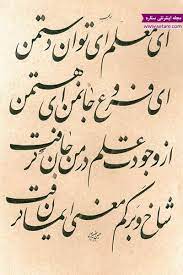 مجله اینترنتی ستاره
www.setare.com
ای معلم ای توان دست من
ای فروغ جان من ای هست من
از وجودت علم در من جان گرفت
شاخ و برگم معنی ایمان گرفت